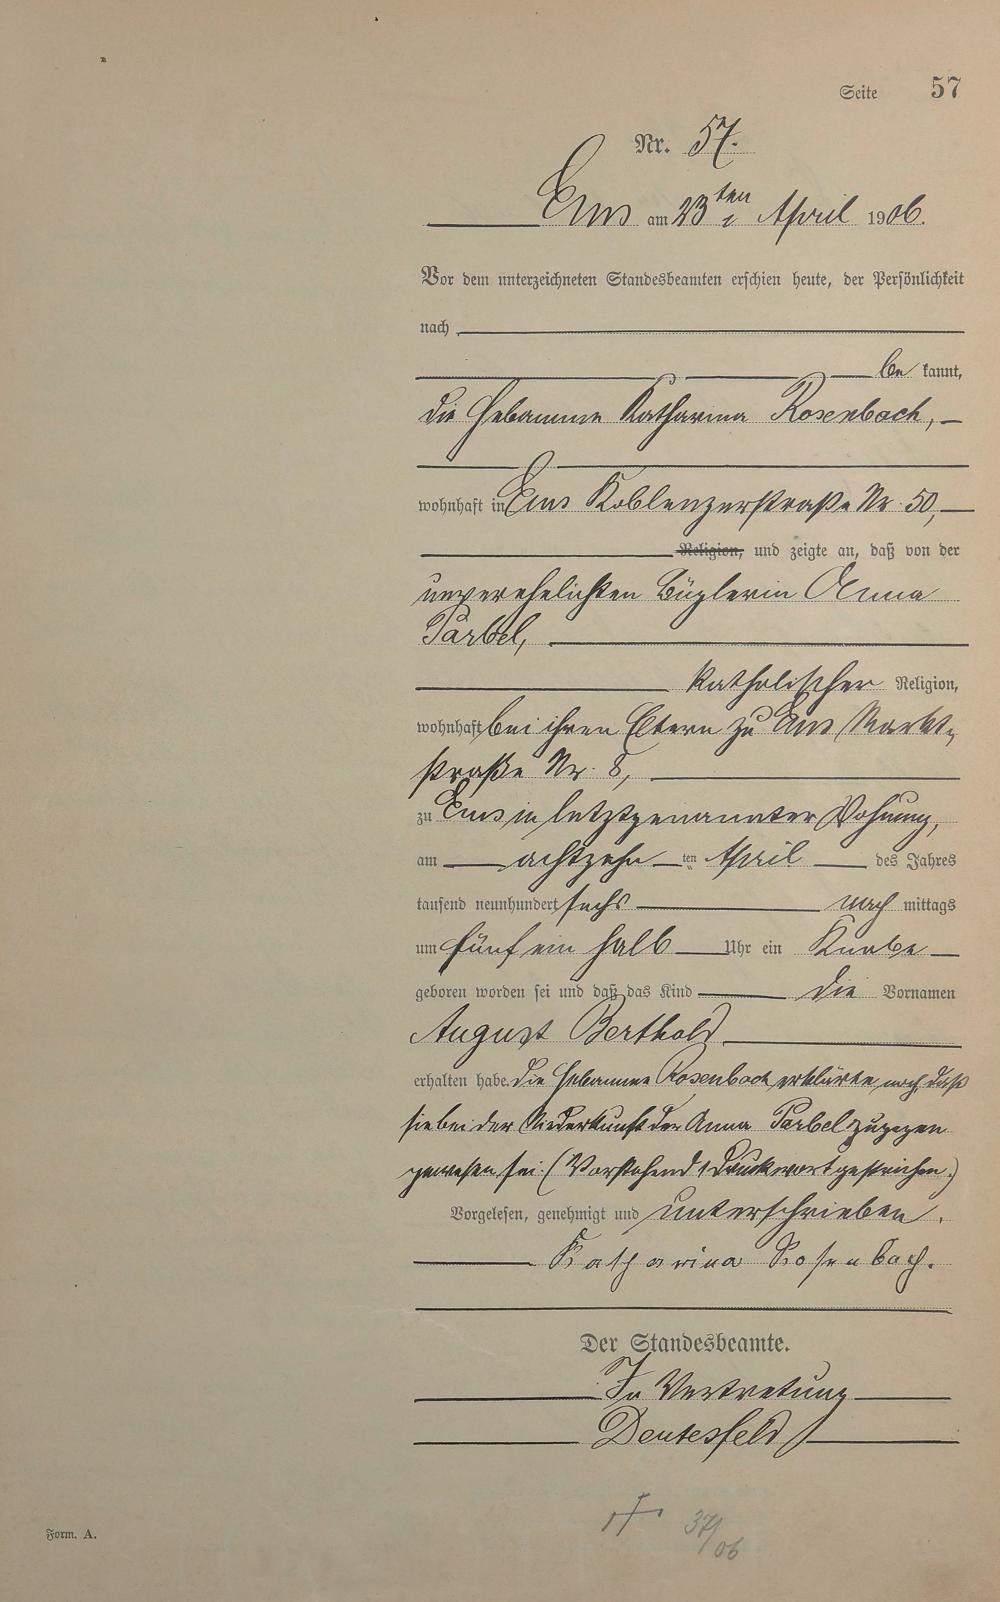 Seite 57
Nr. 57.
Ems am 23ten April 1906.
Vor dem unterzeichneten Standesbeamten erschien heute, der Persönlichkeit
nach
be kannt,
die Hebamme Katharina Rosenbach,
wohnhaft in Ems Koblenzerstraße Nr. 50,
Religion, und zeigte an, daß von der
unverehelichten Büglerin Anna
Parbel,
katholischer Religion,
wohnhaft bei ihren Eltern zu Ems Markt-
straße Nr. 8,
zu Ems in letztgenannter Wohnung,
am achtzehn ten April des Jahres
tausend neunhundert sechs nach mittags
um fünf ein halb Uhr ein Knabe
geboren worden sei und daß das Kind die Vornamen
August Berthold
erhalten habe. Die Hebamme Rosenbach erklärte noch, daß
sie bei der Niederkunft der Anna Parbel zugegen
gewesen sei. (Vorstehend 1 Druckwort gestrichen.)
Vorgelesen, genehmigt und unterschrieben.
Katharina Rosenbach.
Der Standesbeamte.
In Vertretung
Deutesfeld
37/06
Form. A.